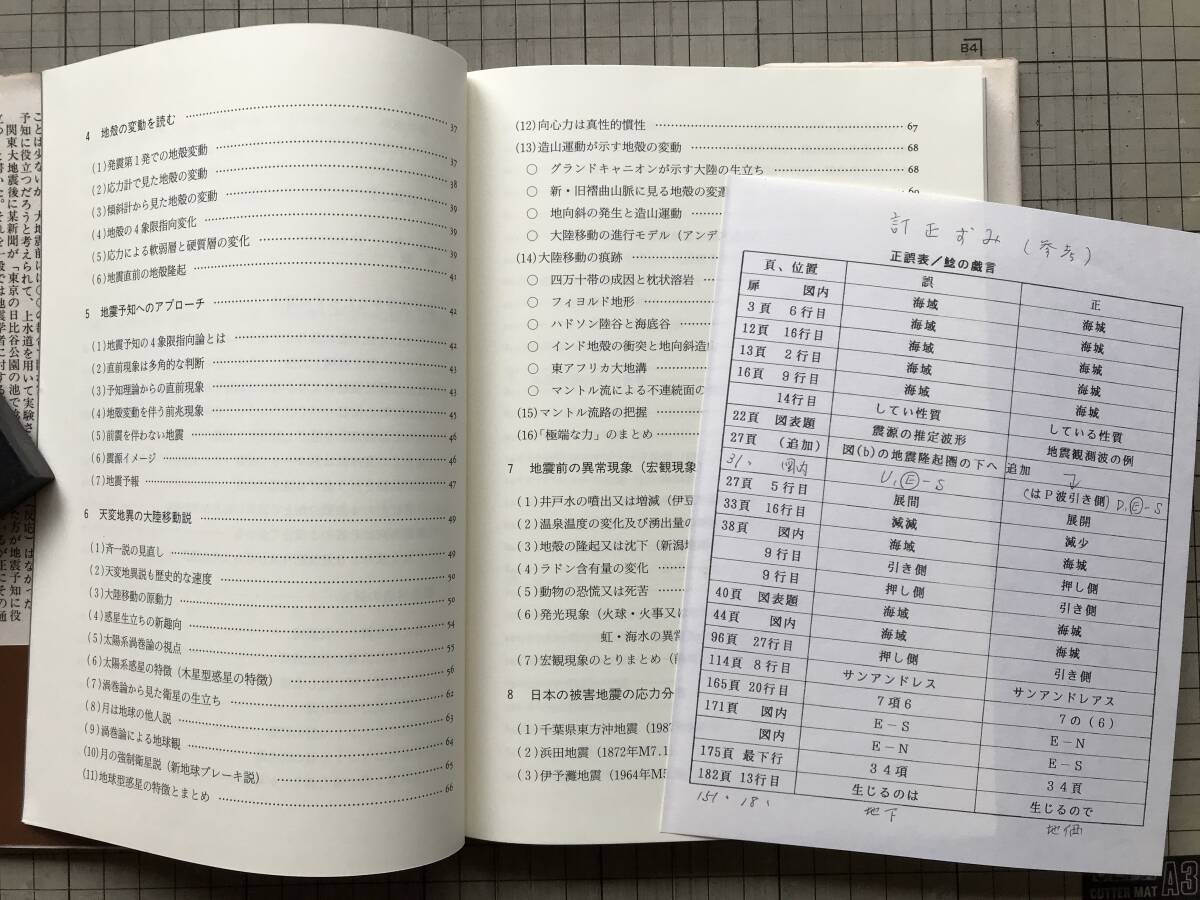 4 地殻の変動を読む 37
(1)発震第1発での地殻変動 37
(2)応力計で見た地殻の変動 38
(3)傾斜計から見た地殻の変動 39
(4)地殻の4象限指向変化 39
(5)応力による軟弱層と硬質層の変化 39
(6)地震直前の地殻隆起 41
5 地震予知へのアプローチ 42
(1)地震予知の4象限指向論とは 42
(2)直前現象は多角的な判断 43
(3)予知理論からの直前現象 43
(4)地殻変動を伴う前兆現象 45
(5)前震を伴わない地震 46
(6)震源イメージ 46
(7)地震予報 47
6 天変地異の大陸移動説 49
(1)斉一説の見直し 49
(2)天変地異説も歴史的な速度 50
(3)大陸移動の原動力 50
(4)惑星生立ちの新趣向 54
(5)太陽系渦巻論の視点 55
(6)太陽系惑星の特徴(木星型惑星の特徴) 56
(7)渦巻論から見た衛星の生立ち 62
(8)月は地球の他人説 63
(9)渦巻論による地球観 64
(10)月の強制衛星説(新地球ブレーキ説) 65
(11)地球型惑星の特徴とまとめ 66
(12)向心力は真性的慣性 67
(13)造山運動が示す地殻の変動 68
○ グランドキャニオンが示す大陸の生立ち 68
○ 新・旧褶曲山脈に見る地殻の変遷 69
○ 地向斜の発生と造山運動
○ 大陸移動の進行モデル(アンデ
(14)大陸移動の痕跡
○ 四万十帯の成因と枕状溶岩
○ フィヨルド地形
○ ハドソン陸谷と海底谷
○ インド地殻の衝突と地向斜造山
○ 東アフリカ大地溝
○ マントル流による不連続面の
(15)マントル流路の把握
(16)「極端な力」のまとめ
7 地震前の異常現象(宏観現象
(1)井戸水の噴出又は増減(伊豆
(2)温泉温度の変化及び湧出量の
(3)地殻の隆起又は沈下(新潟地
(4)ラドン含有量の変化
(5)動物の恐慌又は死苦
(6)発光現象(火球・火事又は
虹・海水の異常
(7)宏観現象のとりまとめ(前
8 日本の被害地震の応力分
(1)千葉県東方沖地震(1987
(2)浜田地震(1872年M7.1
(3)伊予灘地震(1964年M5
訂正ずみ(参考)
正誤表/鯰の戯言
頁、位置 誤 正
扉 図内 海域 海城
3頁 6行目 海域 海城
12頁 16行目 海域 海城
13頁 2行目 海域 海城
16頁 9行目 海域 海城
14行目 してい性質 している性質
22頁 図表題 震源の推定波形 地震観測波の例
27頁 (追加) 図(b)の地震隆起圏の下へ追加 (はP波引き側)
31. 図内 U,Ⓔ-S → D,Ⓔ-S
27頁 5行目 展間 展開
33頁 16行目 減減 減少
38頁 図内 海域 海城
9行目 引き側 押し側
9行目 押し側 引き側
40頁 図表題 海域 海城
44頁 図内 海域 海城
96頁 27行目 押し側 引き側
114頁 8行目 サンアンドレス サンアンドレアス
165頁 20行目 7項6 7の(6)
171頁 図内 E-S E-N
図内 E-N E-S
175頁 最下行 34項 34頁
182頁 13行目 生じるのは 生じるので
151. 18, 地下 地価
B4
CUTTER MAT A3